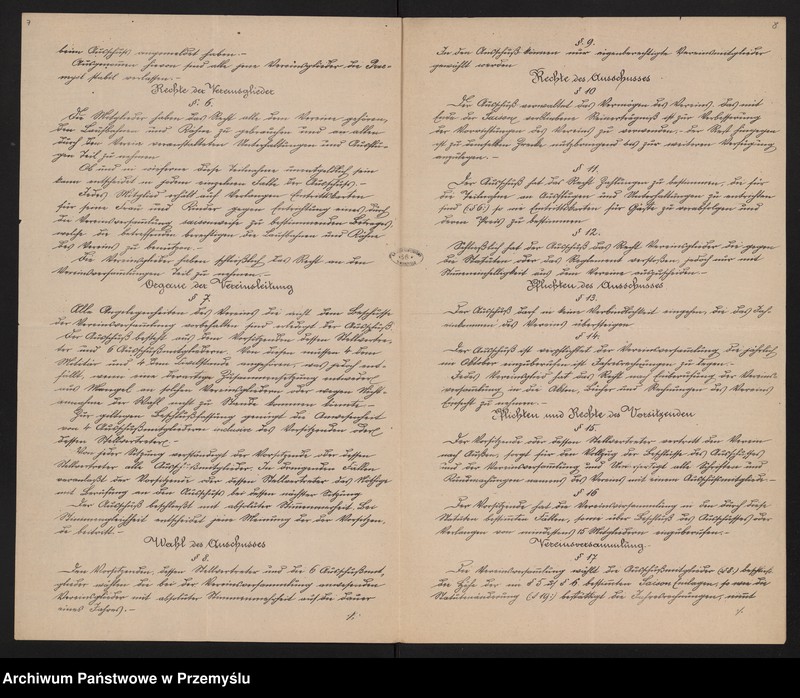 7
beim Ausschuß angemeldet haben.-
Ausgenommen hievon sind alle jene Vereinsglieder die Prze-
mysl stabil verlassen.-
Rechte der Vereinsglieder
§. 6.
Die Mitglieder haben das Recht alle dem Vereine gehören-
den Laufbahnen und Kähne zu gebrauchen und an allen
durch den Verein veranstalteten Unterhaltungen und Ausflü-
gen Teil zu nehmen
Ob und in wieferne diese Teilnahme unentgeldlich sein
kann entscheidet in jedem einzelnen Falle der Ausschuß.-
Jedes Mitglied erhält auf Verlangen Eintrittskarten
für seine Frau und Kinder gegen Entrichtung eines durch
die Vereinsversammlung saisonweise zu bestimmenden Betrages
welche die betreffenden berechtigen die Laufbahnen und Kähne
des Vereins zu benützen.-
Die Vereinsglieder haben schließlich das Recht an den
Vereinsversammlungen Teil zu nehmen.-
Organe der Vereinsleitung
§ 7.
Alle Angelegenheiten des Vereins die nicht dem Beschluße
der Vereinsversammlung vorbehalten sind erledigt der Ausschuß
Der Ausschuß besteht aus dem Vorsitzenden dessen Stellvertre-
ter und 6 Ausschußmitgliedern. Von diesen müssen 4 dem
Militär und 4 dem Civilstande angehören, was jedoch ent-
fällt, wenn eine derartige Zusammensetzung entweder
aus Mangel an solchen Vereinsgliedern oder wegen Nicht-
annahme der Wahl nicht zu Stande kommen könnte.-
Zur giltigen Beschlußfassung genügt die Anwesenheit
von 4 Ausschußmitgliedern inclusive des Vorsitzenden oder
dessen Stellvertreter.-
Von jeder Sitzung verständigt der Vorsitzende oder dessen
Stellvertreter alle Ausschußmitglieder. In dringenden Fällen
veranlaßt der Vorsitzende oder dessen Stellvertreter das Nöthige
mit Berufung an den Ausschuß bei dessen nächster Sitzung
Der Ausschuß beschließt mit absoluter Stimmenmehrheit. Bei
Stimmengleichheit entscheidet jene Meinung der der Vorsitzen-
de beitritt.-
Wahl des Ausschusses
§ 8.
Den Vorsitzenden, dessen Stellvertreter und die 6 Ausschußmit-
glieder wählen die bei der Vereinsversammlung anwesenden
Vereinsglieder mit absoluter Stimmenmehrheit auf die Dauer
eines Jahres.-
./.
8
§. 9.
In den Ausschuß können nur eigenberechtigte Vereinsmitglieder
gewählt werden
Rechte des Ausschusses
§ 10
Der Ausschuß verwaltet das Vermögen des Vereins. Das mit
Ende der Saison verbliebene Reinerträgniß ist zur Verbesserung
der Vorrichtungen des Vereins zu verwenden, der Rest hingegen
ist zu demselben Zwecke nutzbringend bis zur weiteren Verfügung
anzulegen.-
§ 11.
Der Ausschuß hat das Recht Zahlungen zu bestimmen, die für
die Teilnahme an Ausflügen und Unterhaltungen zu entrichten
sind (§6) so wie Eintrittskarten für Gäste zu verabfolgen und
deren Preis zu bestimmen
§ 12.
Schließlich hat der Ausschuß das Recht Vereinsglieder die gegen
die Statuten oder das Reglement verstoßen, jedoch nur mit
Stimmeneinhelligkeit aus dem Vereine auszuscheiden.-
Pflichten des Ausschusses
§ 13.
Der Ausschuß darf in keine Verbindlichkeit eingehen, die das Jah-
reseinkommen des Vereins übersteigen
§ 14.
Der Ausschuß ist verpflichtet der Vereinsversammlung die jährlich
im Oktober einzuberufen ist Jahresrechnungen zu legen.-
Jedes Vereinsglied hat das Recht nach Einberufung der Vereins-
versammlung in die Akten, Bücher und Rechnungen des Vereins
Einsicht zu nehmen.-
Pflichten und Rechte des Vorsitzenden
§ 15.
Der Vorsitzende oder dessen Stellvertreter vertritt den Verein
nach Außen, sorgt für den Vollzug der Beschlüße des Ausschußes
und der Vereinsversammlung und unterfertigt alle Schriften und
Kundmachungen namens des Vereins mit einem Ausschußmitgliede.-
§ 16
Der Vorsitzende hat die Vereinsversammlung in den durch diese
Statuten bestimmten Fällen, sowie über Beschluß des Ausschußes oder
Verlangen von mindestens 15 Mitgliedern einzuberufen.-
Vereinsversammlung.
§ 17.
Die Vereinsversammlung wählt die Ausschußmitglieder (§8) beschließt
die Höhe der im § 5 & § 6 bestimmten Saison Einlagen, so wie die
Statutenänderung (§ 19.) bestättigt die Jahresrechnungen,
./.
Archiwum Państwowe w Przemyślu